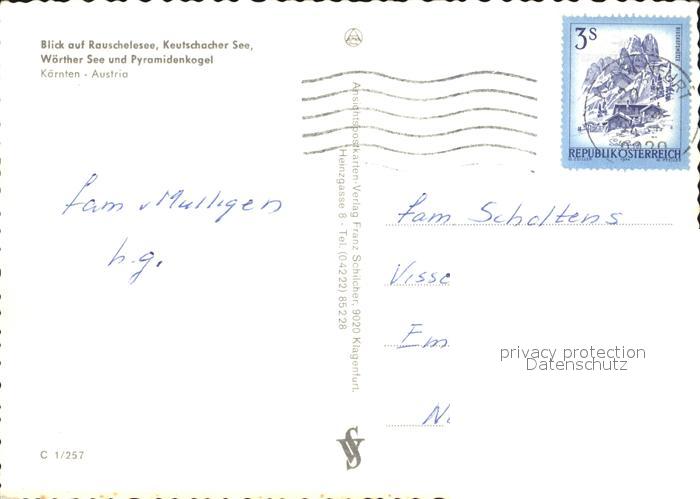 Blick auf Rauschelesee, Keutschacher See,
Wörther See und Pyramidenkogel
Kärnten - Austria
3S
REPUBLIK ÖSTERREICH
Ansichtspostkarten-Verlag Franz Schilcher, 9020 Klagenfurt,
Heinzgasse 8 - Tel. (04222) 85228
fam v Mulligen
h.g.
fam Scholtens
Visse
Em
N.
privacy protection
Datenschutz
C 1/257